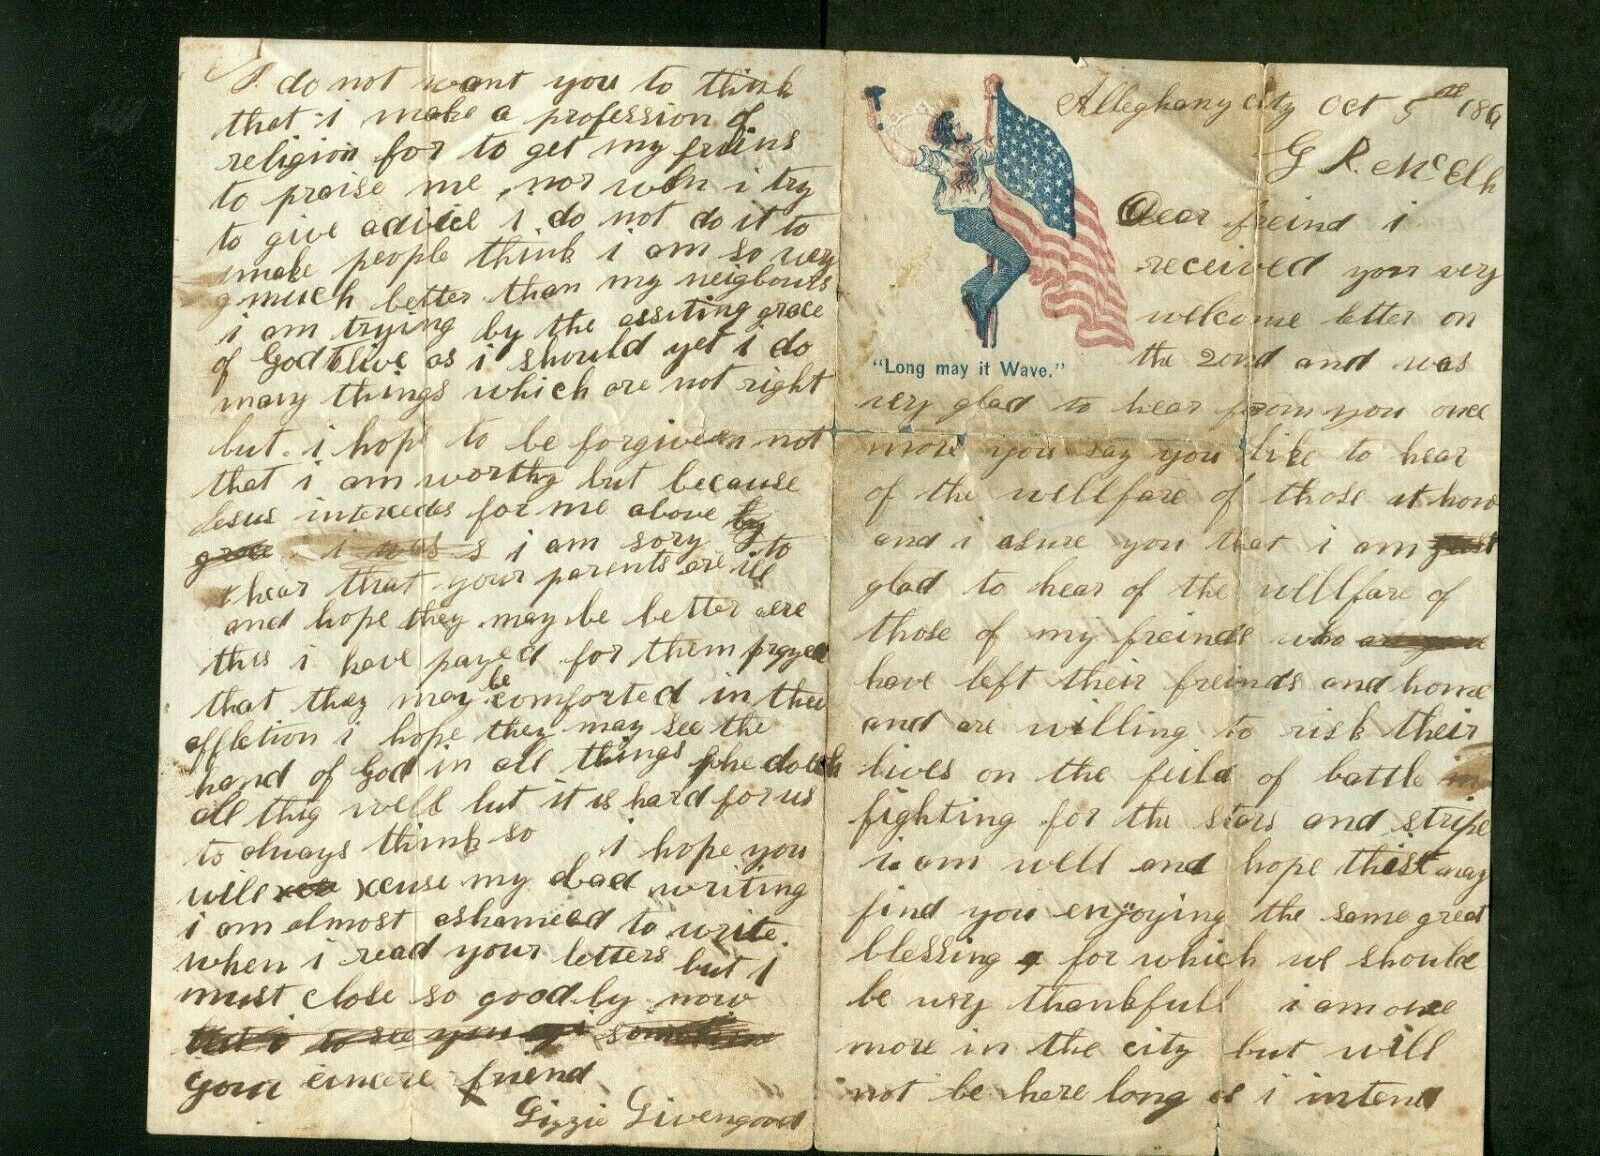 Alleghany City Oct 5th 186
G R. McElh
Dear freind i
received your very
welcome letter on
the 2ond and was
"Long may it Wave."
very glad to hear from you once
more you say you like to hear
of the wellfare of those at home
and i asure you that i am just
glad to hear of the wellfare of
those of my freinds who
have left their freinds and home
and are willing to risk their
lives on the feild of battle in
fighting for the stars and stripe
i am well and hope this may
find you enjoying the same great
blessing for which we should
be very thankfull i am once
more in the city but will
not be here long as i intend
I do not want you to think
that i make a profession of
religion for to get my freins
to praise me nor when i try
to give advice i do not do it to
make people think i am so very
much better than my neighbours
i am trying by the assiting grace
of God to live as i should yet i do
many things which are not right
but i hope to be forgiven not
that i am worthy but because
Jesus intercedes for me above by
grace i am sory to
hear that your parents are ill
and hope they may be better ere
this i have payed for them
that they may be comforted in their
affletion i hope they may see the
hand of God in all things he doeth
all thig well but it is hard for us
to always think so i hope you
will xcuse my bad writing
i am almost ashamed to write
when i read your letters but i
must close so good by now
but i to see you
your cincere friend
Lizzie Livengood